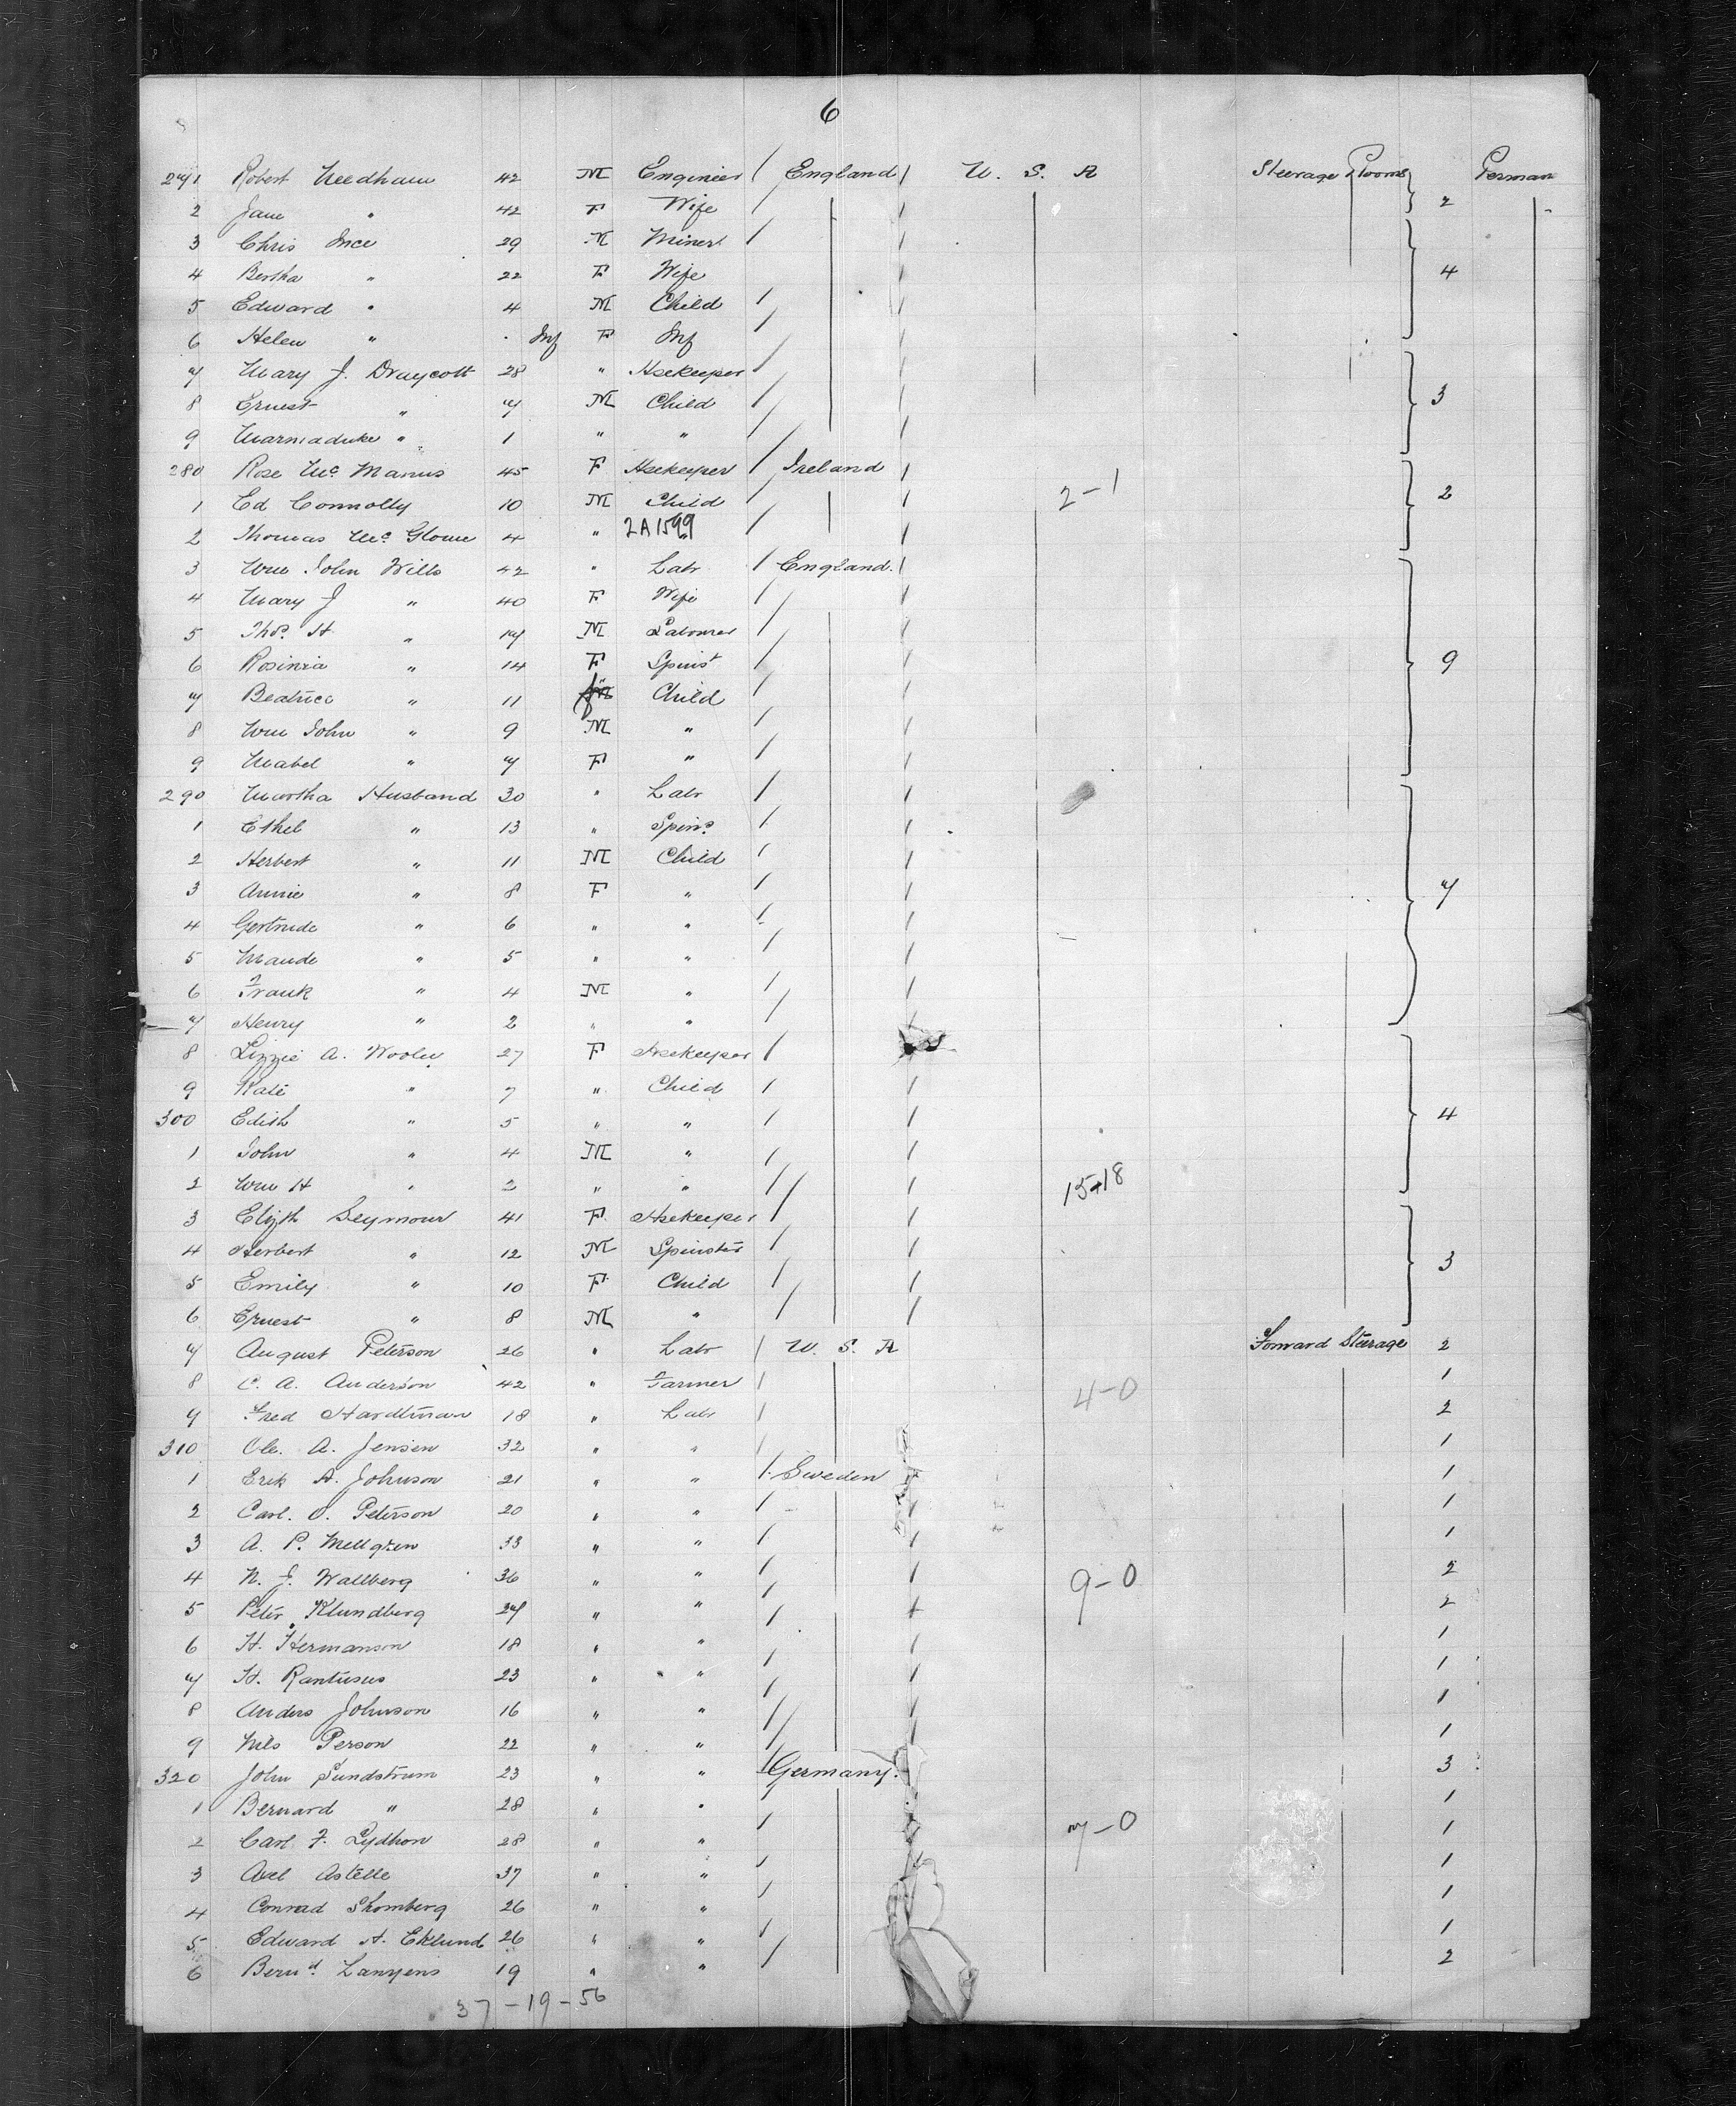 6
271 Robert Needham 42 M Engineer / England / U. S. A Steerage Rooms } 2 German
2 Jane " 42 F Wife / /
3 Chris Ince 29 M Miner / /
4 Bertha " 22 F Wife / / 4
5 Edward " 4 M Child / /
6 Helen " Inf F Inf / /
7 Mary J. Draycott 28 " Hsekeeper / /
8 Ernest " 7 M Child / / 3
9 Marmaduke " 1 " " / /
280 Rose McManus 45 F Hsekeeper / Ireland /
1 Ed Connolly 10 M Child / / 2-1 2
2 Thomas McGlone 4 " 2A1599 / /
3 Wm John Wills 42 " Labr / England /
4 Mary J " 40 F Wife / /
5 Thos. H " 17 M Labourer / /
6 Rosinia " 14 F Spinst / / 9
7 Beatrice " 11 f Child / /
8 Wm John " 9 M " / /
9 Mabel " 7 F " / /
290 Martha Husband 30 " Labr / /
1 Ethel " 13 " Spins / /
2 Herbert " 11 M Child / /
3 Annie " 8 F " / / 7
4 Gertrude " 6 " " / /
5 Maude " 5 " " / /
6 Frank " 4 M " / /
7 Henry " 2 " " / /
8 Lizzie A. 27 F Hsekeeper /
9 Kate " 7 " Child / /
300 Edith " 5 " " / / 4
1 John " 4 M " / /
2 Wm H " 2 " " / / 15-18
3 Elizth Seymour 41 F Hsekeeper / /
4 Herbert " 12 M Spinster / /
5 Emily " 10 F Child / / 3
6 Ernest " 8 M " / /
7 August Peterson 26 " Labr / U. S. A Forward Steerage 2
8 C. A. Anderson 42 " Farmer / 4-0 1
9 Fred Hardtman 18 " Labr / 2
310 Ole. A. Jensen 32 " " / 1
1 Erik A. Johnson 21 " " / Sweden / 1
2 Carl. O. Peterson 20 " " / / 1
3 A. P. Mellgren 33 " " / / 1
4 N. J. Wallberg 36 " " / / 9-0 2
5 Peter Klundberg 27 " " / / 2
6 H. Hermanson 18 " " / / 1
7 H. Rantusus 23 " " / / 1
8 Anders Johnson 16 " " / / 1
9 Nils Person 22 " " / / 1
320 John Sundstrum 23 " " / Germany. / 3
1 Bernard " 28 " " / 1
2 Carl F. Lydhon 28 " " / 7-0 1
3 Axel Astelle 37 " " / 1
4 Conrad Shomberg 26 " " / 1
5 Edward A. Eklund 26 " " / 1
6 Bernd Lanyens 19 " " / 2
37-19-56